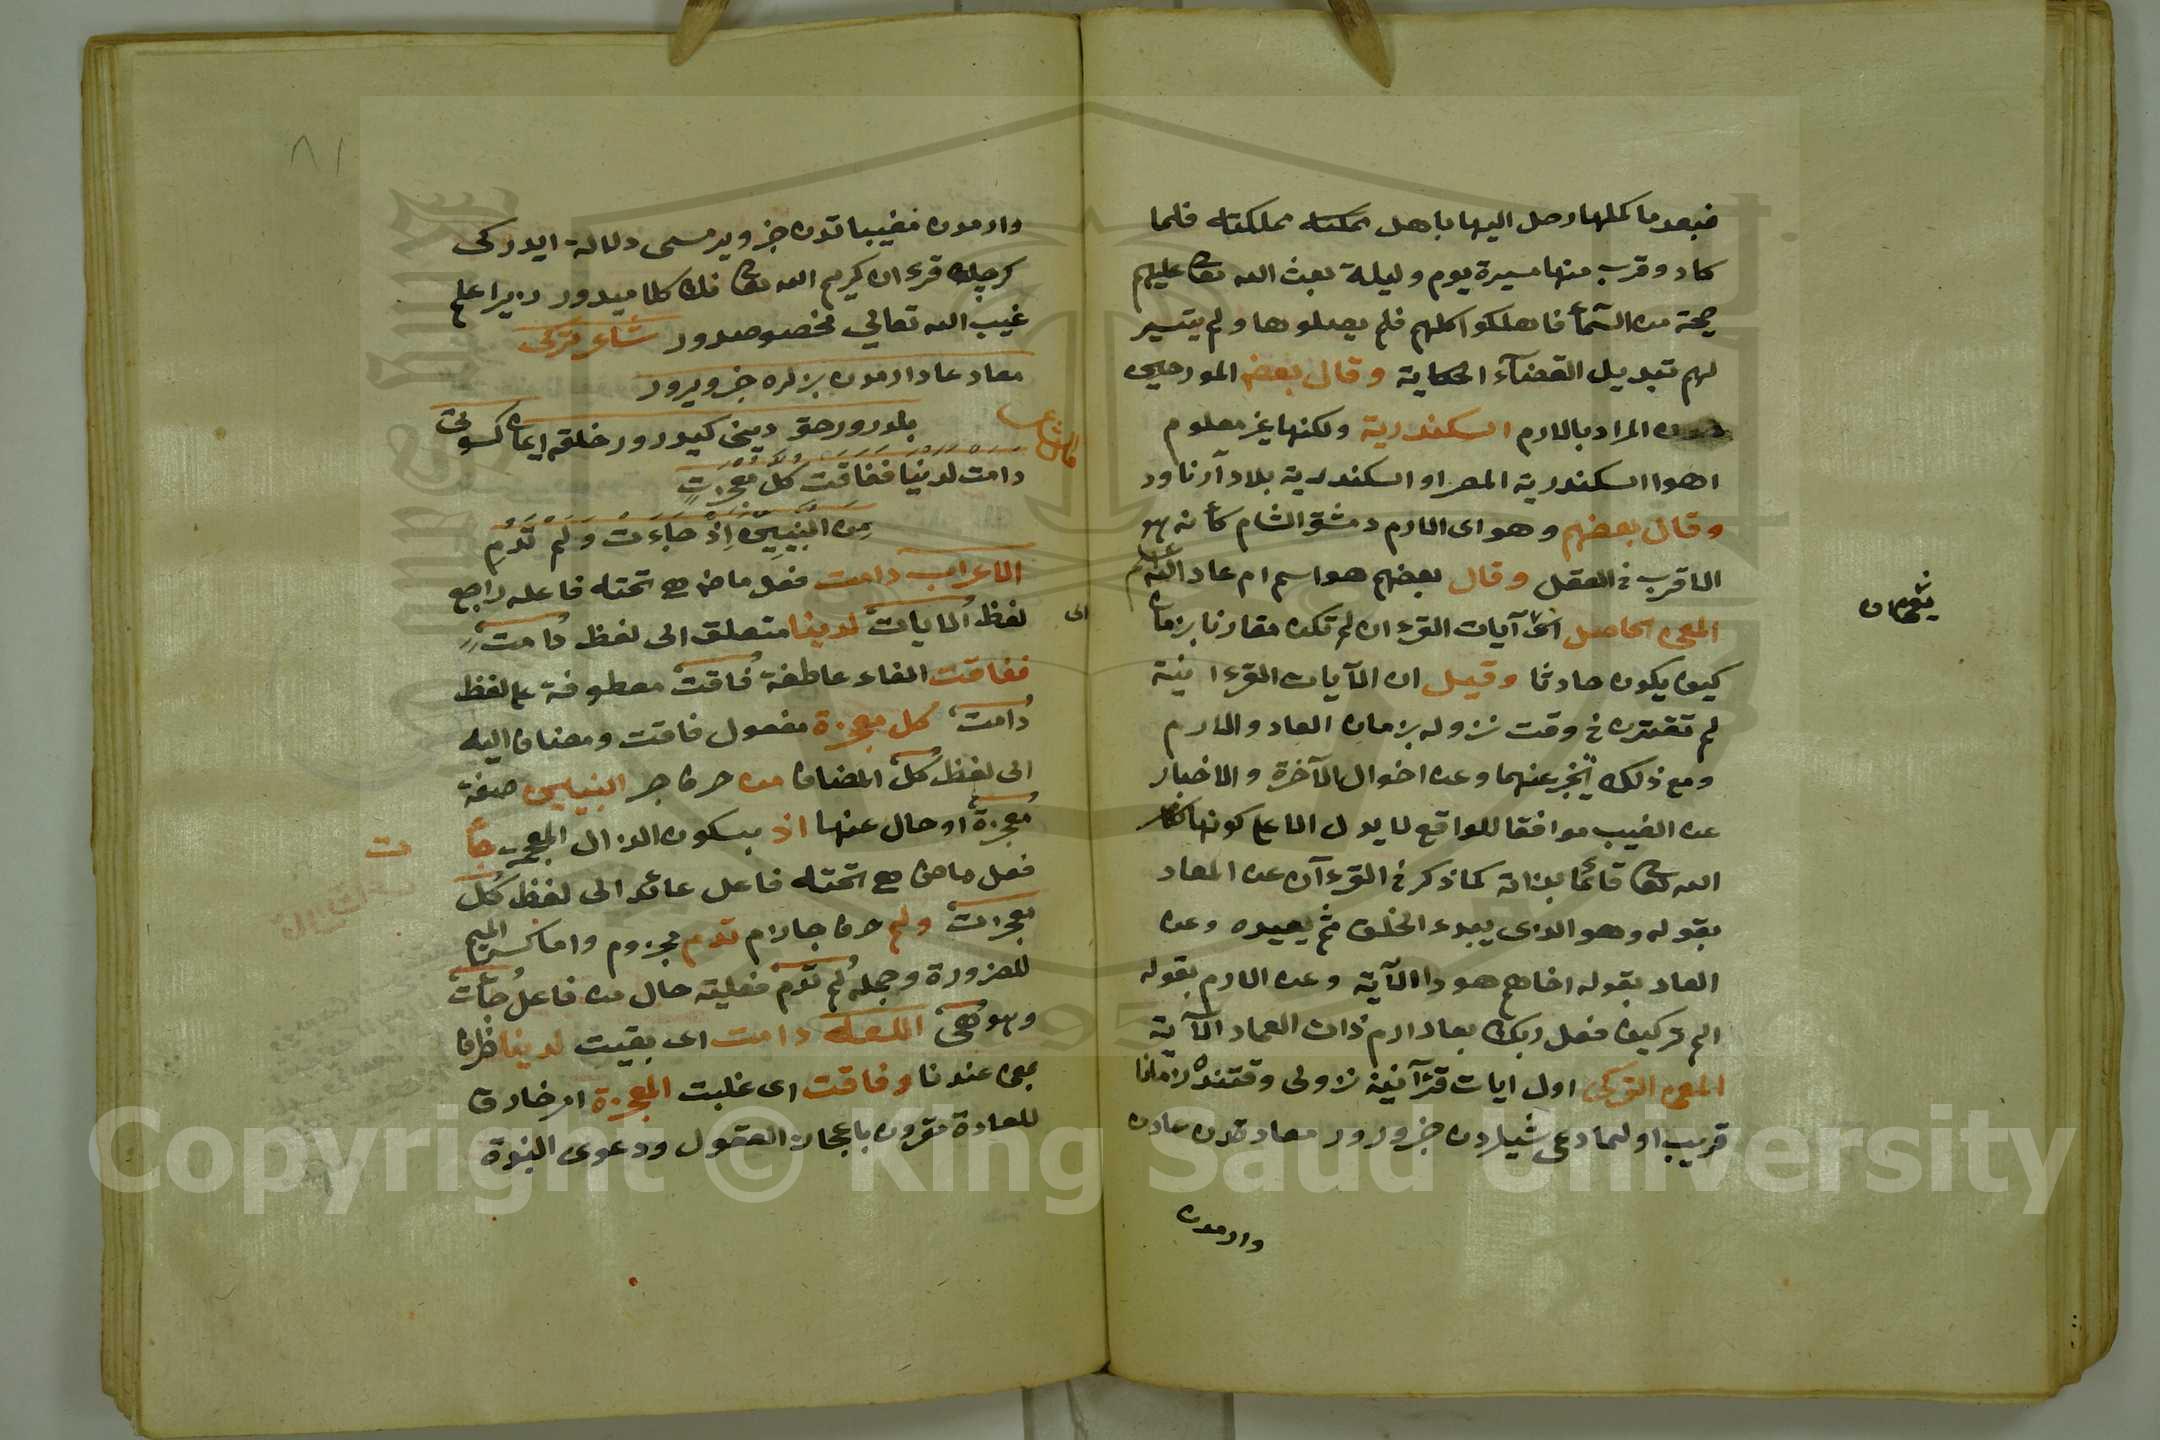 فبعد ما كملها رحل اليها باهل مملكته مملكته فلما
كاد وقرب منها مسيرة يوم وليلة بعث الله تعا عليهم
صيحة من السمآء فاهلكوا كلهم فلم يصلوها ولم يتيسر
لهم تبديل القضآء الحكاية وقال بعض المورخين
المراد بالارم اسكندرية ولكنها غير معلوم
اهوا اسكندرية المصر او اسكندرية بلاد آرناود
وقال بعضهم وهو اى الارم دمشق الشام كأنه هو
الاقرب فى العقل وقال بعضهم هو اسم ام عاد
المعنى الحاصل آيات القرءان لم تكن مقارنا بزمان
كيف يكون حادثا وقيل ان الآيات القرءانية
لم تقترن فى وقت نزوله بزمان العاد والارم
ومع ذلك يخبر عنهما وعن احوال الآخرة والاخبار
عن الغيب موافقا للواقع لا يدل الا على كونها كلام
الله تعا قائما بذاته كما ذكر فى القرءآن عن المعاد
بقوله وهو الذى يبدء الخلق ثم يعيده وعن
العاد بقوله اخاهم هودا الآية وعن الارم بقوله
الم تر كيف فعل ربك بعاد ارم ذات العماد الآية
المعنى التركى اول ايات قرآنية نزولى وقتنده زمانا
قريب اولمادغى شيلردن خبر ورور معاددن عاددن
واردمدن
وارمدن مغيباتدن خبر ويرمسى دلالة ايدركى
كرچك قرءان كريم الله تعا نك كلاميدور زيرا علم
غيب الله تعالى مخصوصدور شاعر تركى
معاد عاد ارمدن بزلره خبر ويرور
بلدرور حق دينى كيدرور خلقه ايمان كسوتى
قال الناظم
دامت لدينا ففاقت كل معجزة
من النبيين اذ جاءت ولم تدم
الاعراب دامت فعل ماض هى تحته فاعله راجع
الى
لفظ الايات لدينا متعلق الى لفظ دامت
ففاقت الفاء عاطفة فاقت معطوفة على لفظ
دامت كل معجزة مفعول فاقت ومضاف اليه
الى لفظ كل المضاف من حرف جر النبيين صفة
معجزة او حال عنها اذ بسكون الذال المعجمة جاءت
فعل ماض هى تحته فاعل عائد الى لفظ كل
معجزت ولم حرف جازم تدم مجزوم واما كسر الميم
للضرورة وجمله لم تدم فعلية حال من فاعل جاءت
وهو هى اللغة دامت اى بقيت لدينا ظرف
بمعنى عندنا وفاقت اى غلبت المعجزة امر خارق
للعادة مقرون باعجاز العقول ودعوى النبوة
Copyright © King Saud University